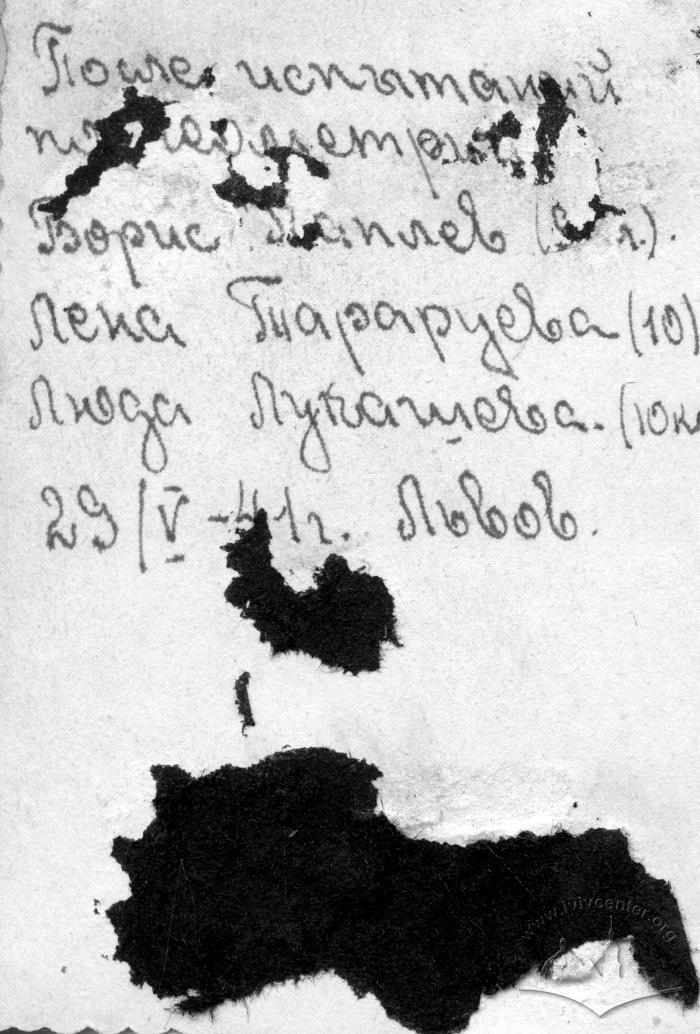 После испытаний
по геометрии
Борис (9 г.).
Лена Тараруева (10)
Люда Лукашева. (10кл
29/V -41г. Львов.
www.lvivcenter.org